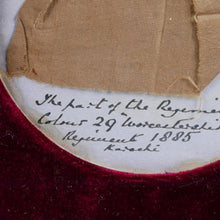 The part of the Regimen
Colour 29 " Worcestershi
Regiment 1885
Karachi